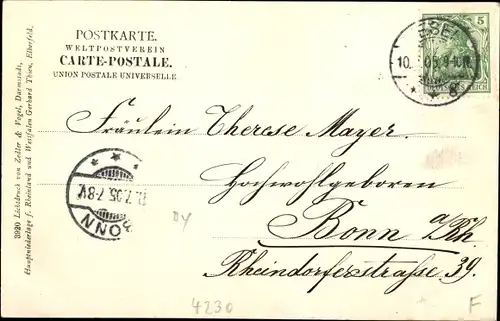 POSTKARTE.
WELTPOSTVEREIN
CARTE-POSTALE.
UNION POSTALE UNIVERSELLE.
3920 Lichtdruck von Zedler & Vogel, Darmstadt,
Hauptniederlage f. Rheinland und Westfalen Gerhard Thien, Elberfeld.
5
10. 05. 9-10.
REICH
Fräulein Therese Mayer.
Hochwohlgeboren
Bonn a/Rh
Rheindorferstrasse 39.
7.05.7-8V.
BONN
4230
F